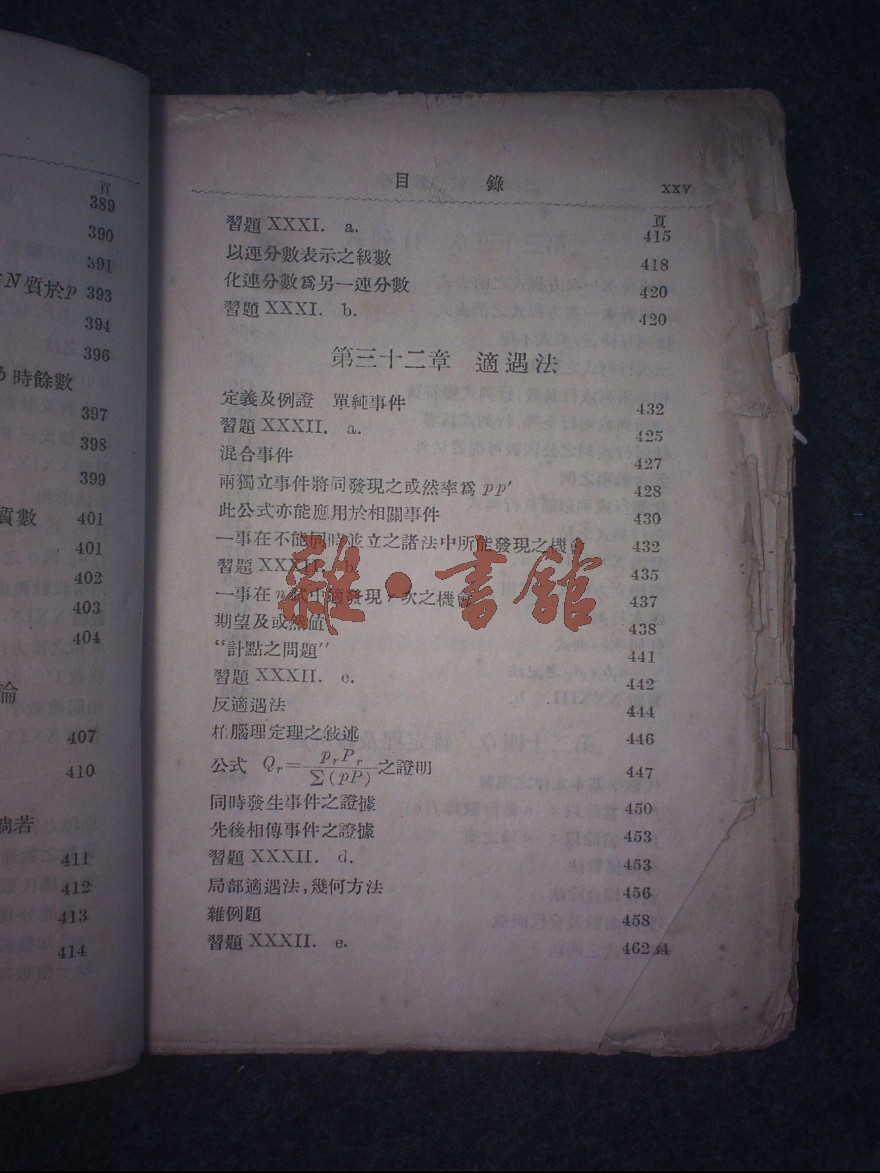 頁
389
390
391
N質於p 393
394
396
時餘數
397
398
399
質數 401
401
402
403
404
論
407
410
倘若
411
412
413
414
目錄 xxv
頁
習題 XXXI. a. 415
以連分數表示之級數 418
化連分數爲另一連分數 420
習題 XXXI. b. 420
第三十二章 適遇法
定義及例證 單純事件 432
習題 XXXII. a. 425
混合事件 427
兩獨立事件將同發現之或然率爲 pp′ 428
此公式亦能應用於相關事件 430
一事在不能同時並立之諸法中所能發現之機會 432
習題 XXXII. b. 435
一事在 n 試中適發現 r 次之機會 437
期望及或然值 438
“計點之問題” 441
習題 XXXII. c. 442
反適遇法 444
柏腦理定理之敍述 446
公式 Qr = prPr / Σ(pP) 之證明 447
同時發生事件之證據 450
先後相傳事件之證據 453
習題 XXXII. d. 453
局部適遇法，幾何方法 456
雜例題 458
習題 XXXII. e. 462
雜·書館